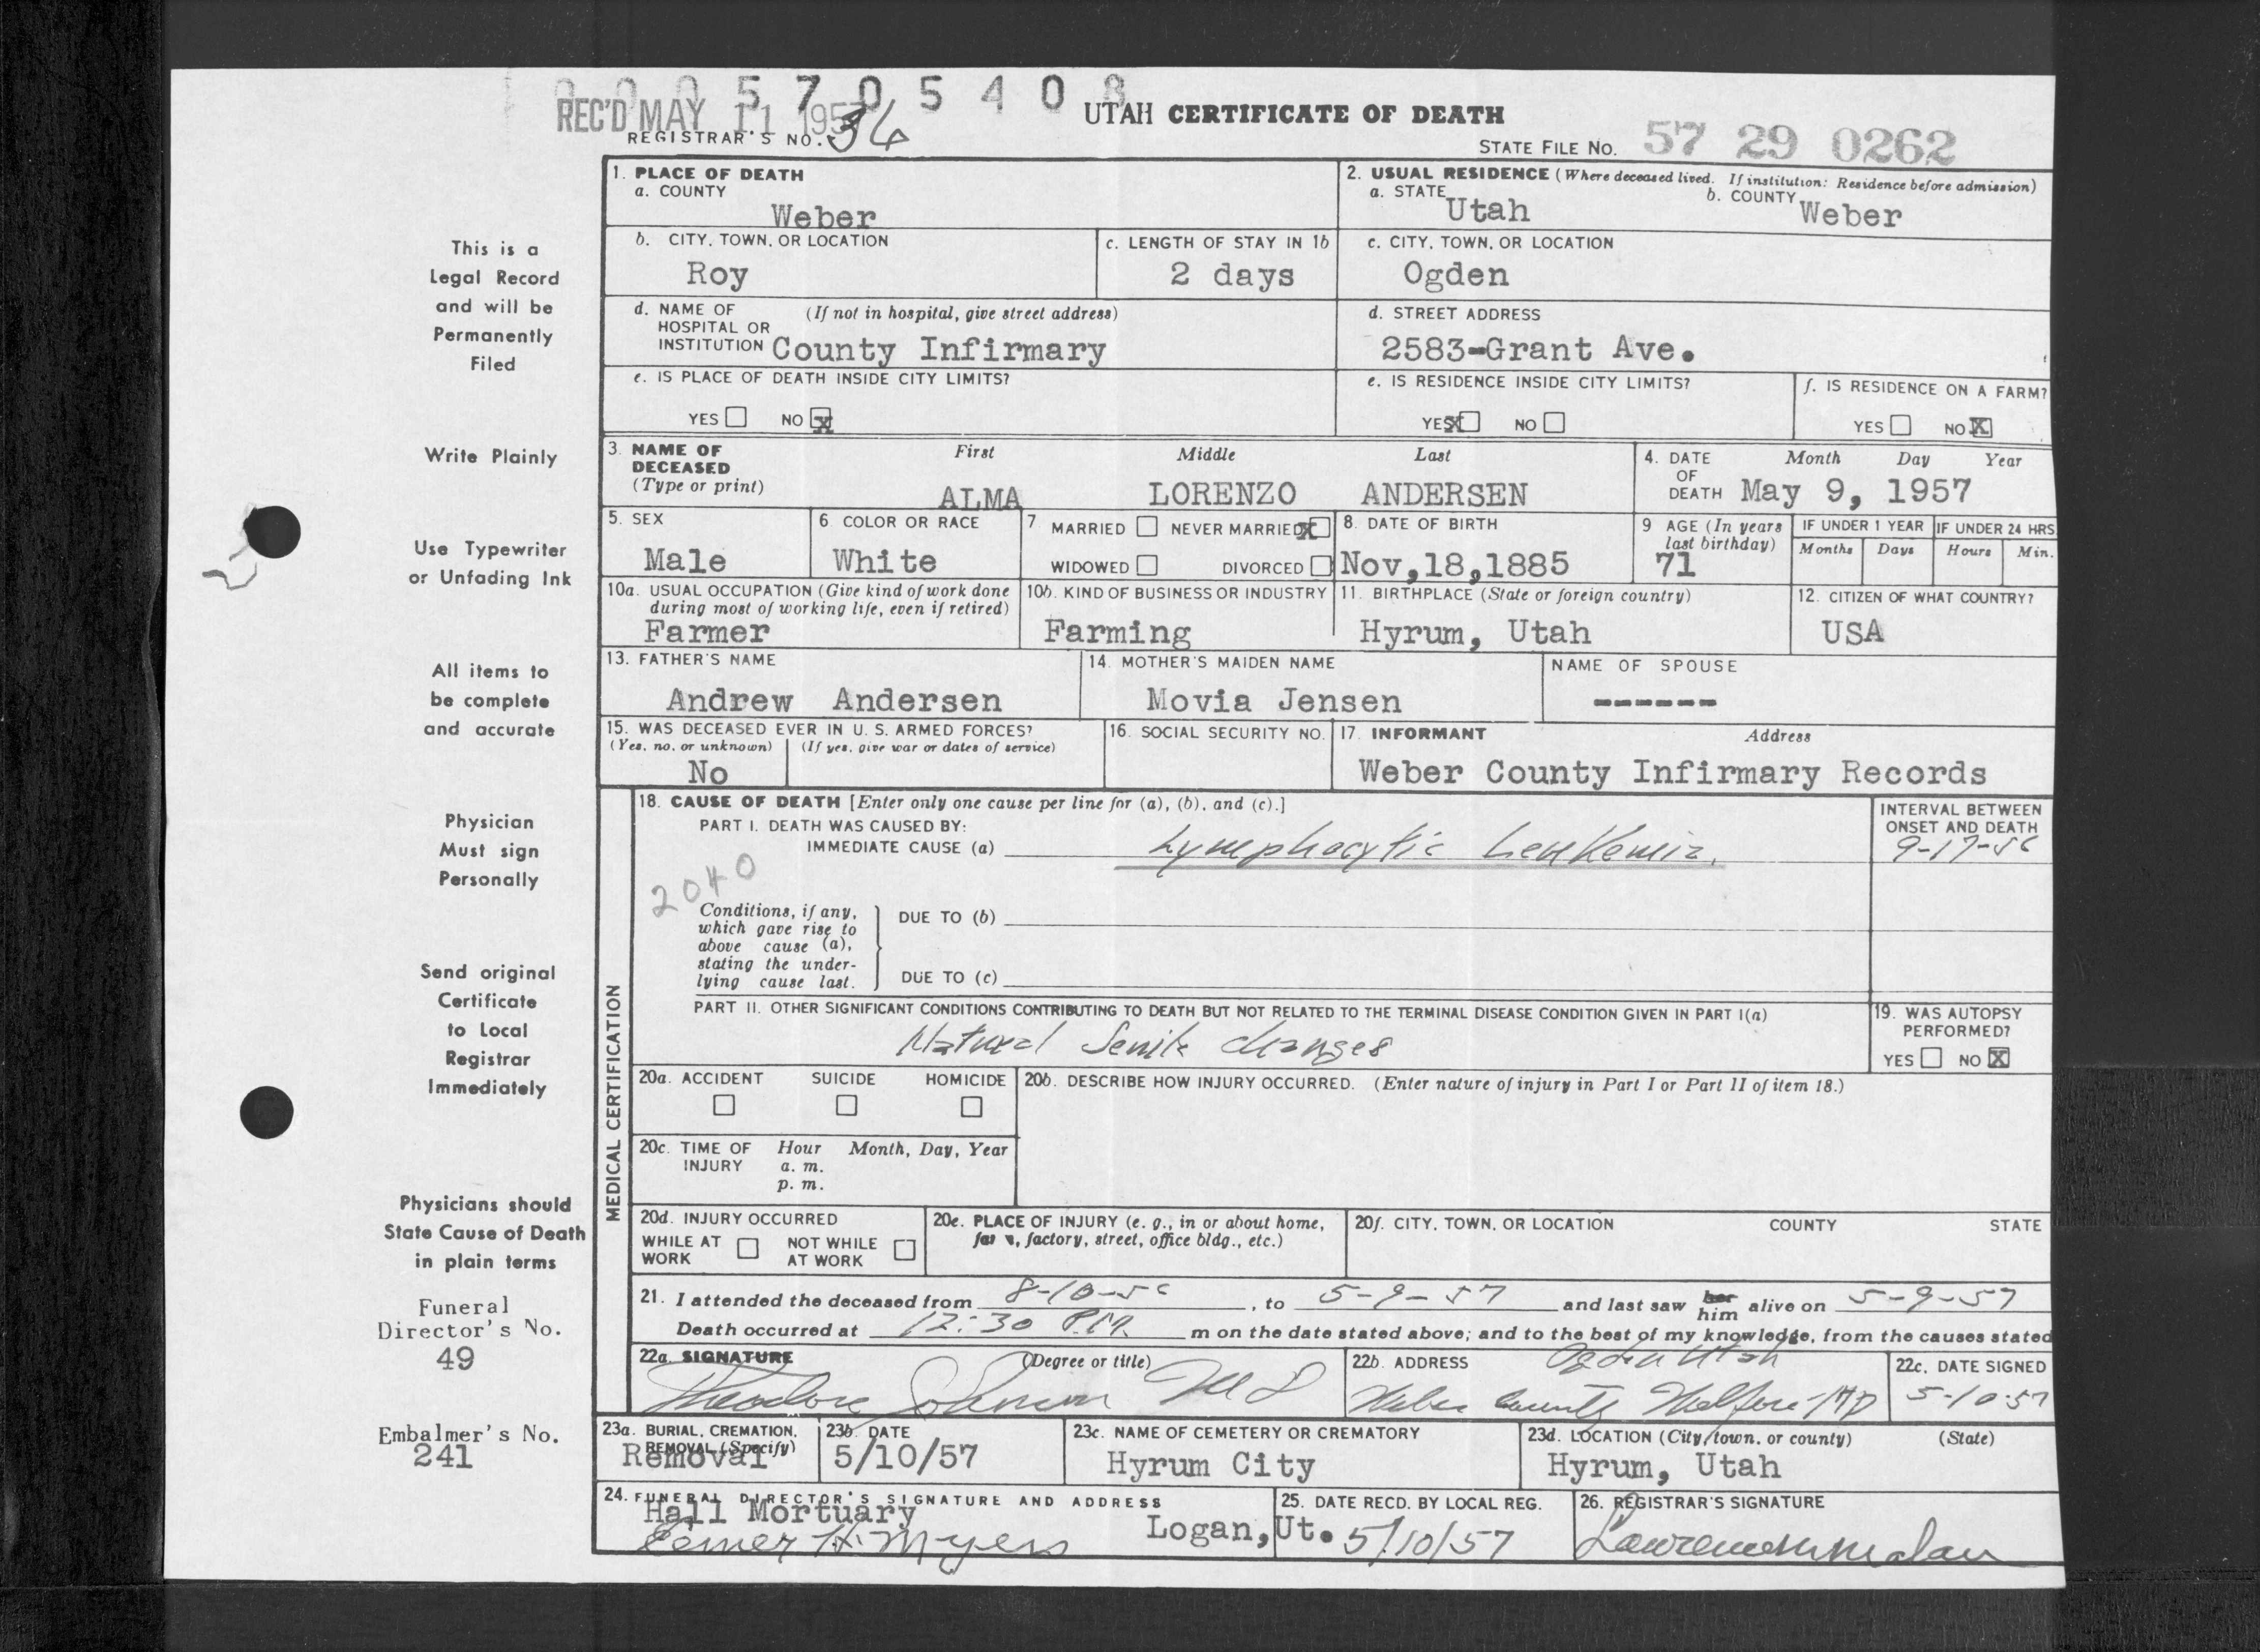 0 0 0 5 7 0 5 4 0 8
REC'D MAY 11 1957
UTAH CERTIFICATE OF DEATH
REGISTRAR'S NO. 36
STATE FILE NO. 57 29 0262
1. PLACE OF DEATH
a. COUNTY
Weber
2. USUAL RESIDENCE (Where deceased lived. If institution: Residence before admission)
a. STATE Utah b. COUNTY Weber
b. CITY, TOWN, OR LOCATION
Roy
c. LENGTH OF STAY IN 1b
2 days
c. CITY, TOWN, OR LOCATION
Ogden
d. NAME OF (If not in hospital, give street address)
HOSPITAL OR
INSTITUTION County Infirmary
d. STREET ADDRESS
2583-Grant Ave.
e. IS PLACE OF DEATH INSIDE CITY LIMITS?
YES NO X
e. IS RESIDENCE INSIDE CITY LIMITS?
YES X NO
f. IS RESIDENCE ON A FARM?
YES NO X
3. NAME OF First Middle Last
DECEASED
(Type or print)
ALMA LORENZO ANDERSEN
4. DATE Month Day Year
OF
DEATH May 9, 1957
5. SEX
Male
6. COLOR OR RACE
White
7. MARRIED NEVER MARRIED X
WIDOWED DIVORCED
8. DATE OF BIRTH
Nov,18,1885
9 AGE (In years
last birthday)
71
IF UNDER 1 YEAR
Months Days
IF UNDER 24 HRS
Hours Min.
10a. USUAL OCCUPATION (Give kind of work done
during most of working life, even if retired)
Farmer
10b. KIND OF BUSINESS OR INDUSTRY
Farming
11. BIRTHPLACE (State or foreign country)
Hyrum, Utah
12. CITIZEN OF WHAT COUNTRY?
USA
13. FATHER'S NAME
Andrew Andersen
14. MOTHER'S MAIDEN NAME
Movia Jensen
NAME OF SPOUSE
------
15. WAS DECEASED EVER IN U. S. ARMED FORCES?
(Yes, no, or unknown) (If yes, give war or dates of service)
No
16. SOCIAL SECURITY NO.
17. INFORMANT Address
Weber County Infirmary Records
MEDICAL CERTIFICATION
18. CAUSE OF DEATH [Enter only one cause per line for (a), (b), and (c).]
PART I. DEATH WAS CAUSED BY:
IMMEDIATE CAUSE (a) Lymphocytic Leukemia.
INTERVAL BETWEEN
ONSET AND DEATH
9-17-56
2040
Conditions, if any,
which gave rise to
above cause (a),
stating the under-
lying cause last.
DUE TO (b)
DUE TO (c)
PART II. OTHER SIGNIFICANT CONDITIONS CONTRIBUTING TO DEATH BUT NOT RELATED TO THE TERMINAL DISEASE CONDITION GIVEN IN PART I(a)
Natural Senile changes
19. WAS AUTOPSY
PERFORMED?
YES NO X
20a. ACCIDENT SUICIDE HOMICIDE
20b. DESCRIBE HOW INJURY OCCURRED. (Enter nature of injury in Part I or Part II of item 18.)
20c. TIME OF Hour Month, Day, Year
INJURY a. m.
p. m.
20d. INJURY OCCURRED
WHILE AT NOT WHILE
WORK AT WORK
20e. PLACE OF INJURY (e. g., in or about home,
farm, factory, street, office bldg., etc.)
20f. CITY, TOWN, OR LOCATION COUNTY STATE
21. I attended the deceased from 8-10-56, to 5-9-57 and last saw her him alive on 5-9-57
Death occurred at 12:30 P.M. m on the date stated above; and to the best of my knowledge, from the causes stated
22a. SIGNATURE (Degree or title)
Theodore Johnson MD
22b. ADDRESS Ogden Utah
Weber County Welfare
22c. DATE SIGNED
5-10-57
23a. BURIAL, CREMATION,
REMOVAL (Specify)
Removal
23b. DATE
5/10/57
23c. NAME OF CEMETERY OR CREMATORY
Hyrum City
23d. LOCATION (City, town, or county) (State)
Hyrum, Utah
24. FUNERAL DIRECTOR'S SIGNATURE AND ADDRESS
Hall Mortuary
H. Myers
Logan, Ut.
25. DATE RECD. BY LOCAL REG.
5/10/57
26. REGISTRAR'S SIGNATURE
This is a
Legal Record
and will be
Permanently
Filed
Write Plainly
Use Typewriter
or Unfading Ink
All items to
be complete
and accurate
Physician
Must sign
Personally
Send original
Certificate
to Local
Registrar
Immediately
Physicians should
State Cause of Death
in plain terms
Funeral
Director's No.
49
Embalmer's No.
241